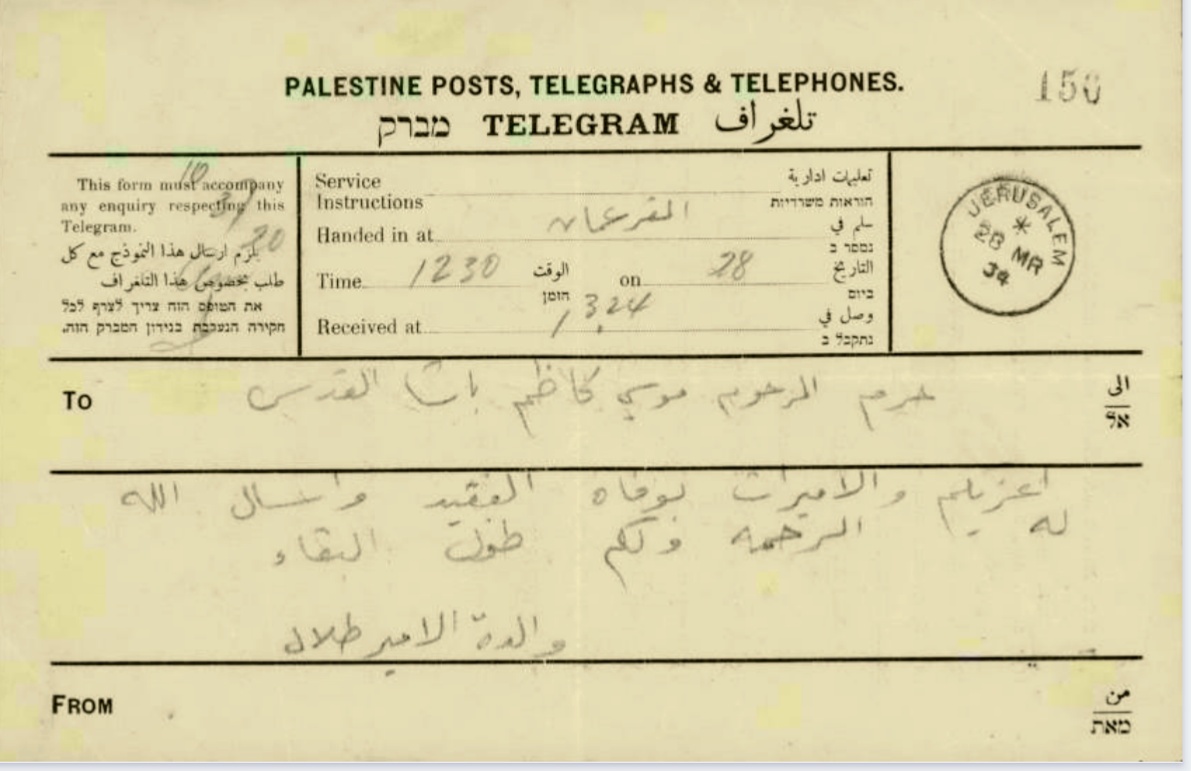 PALESTINE POSTS, TELEGRAPHS & TELEPHONES.
150
מברק TELEGRAM تلغراف
This form must accompany
any enquiry respecting this
Telegram.
يلزم ارسال هذا النموذج مع كل
طلب بخصوص هذا التلغراف
את הטופס הזה צריך לצרף לכל
חקירה הנערכת בנידון המברק הזה.
10
30
Service Instructions تعليمات ادارية
הוראות משרדיות
Handed in at المقر عمان سلم في
נמסר ב
Time 1230 الوقت on 28 التاريخ
הזמן ביום
Received at 1324 وصل في
נתקבל ב
JERUSALEM
28 MR
34
To حرم المرحوم موسى كاظم باشا القدس الى
אל
اعزيكم والاميرات بوفاه الفقيد واسال الله
له الرحمه ولكم طول البقاء
والدة الامير طلال
FROM من
מאת